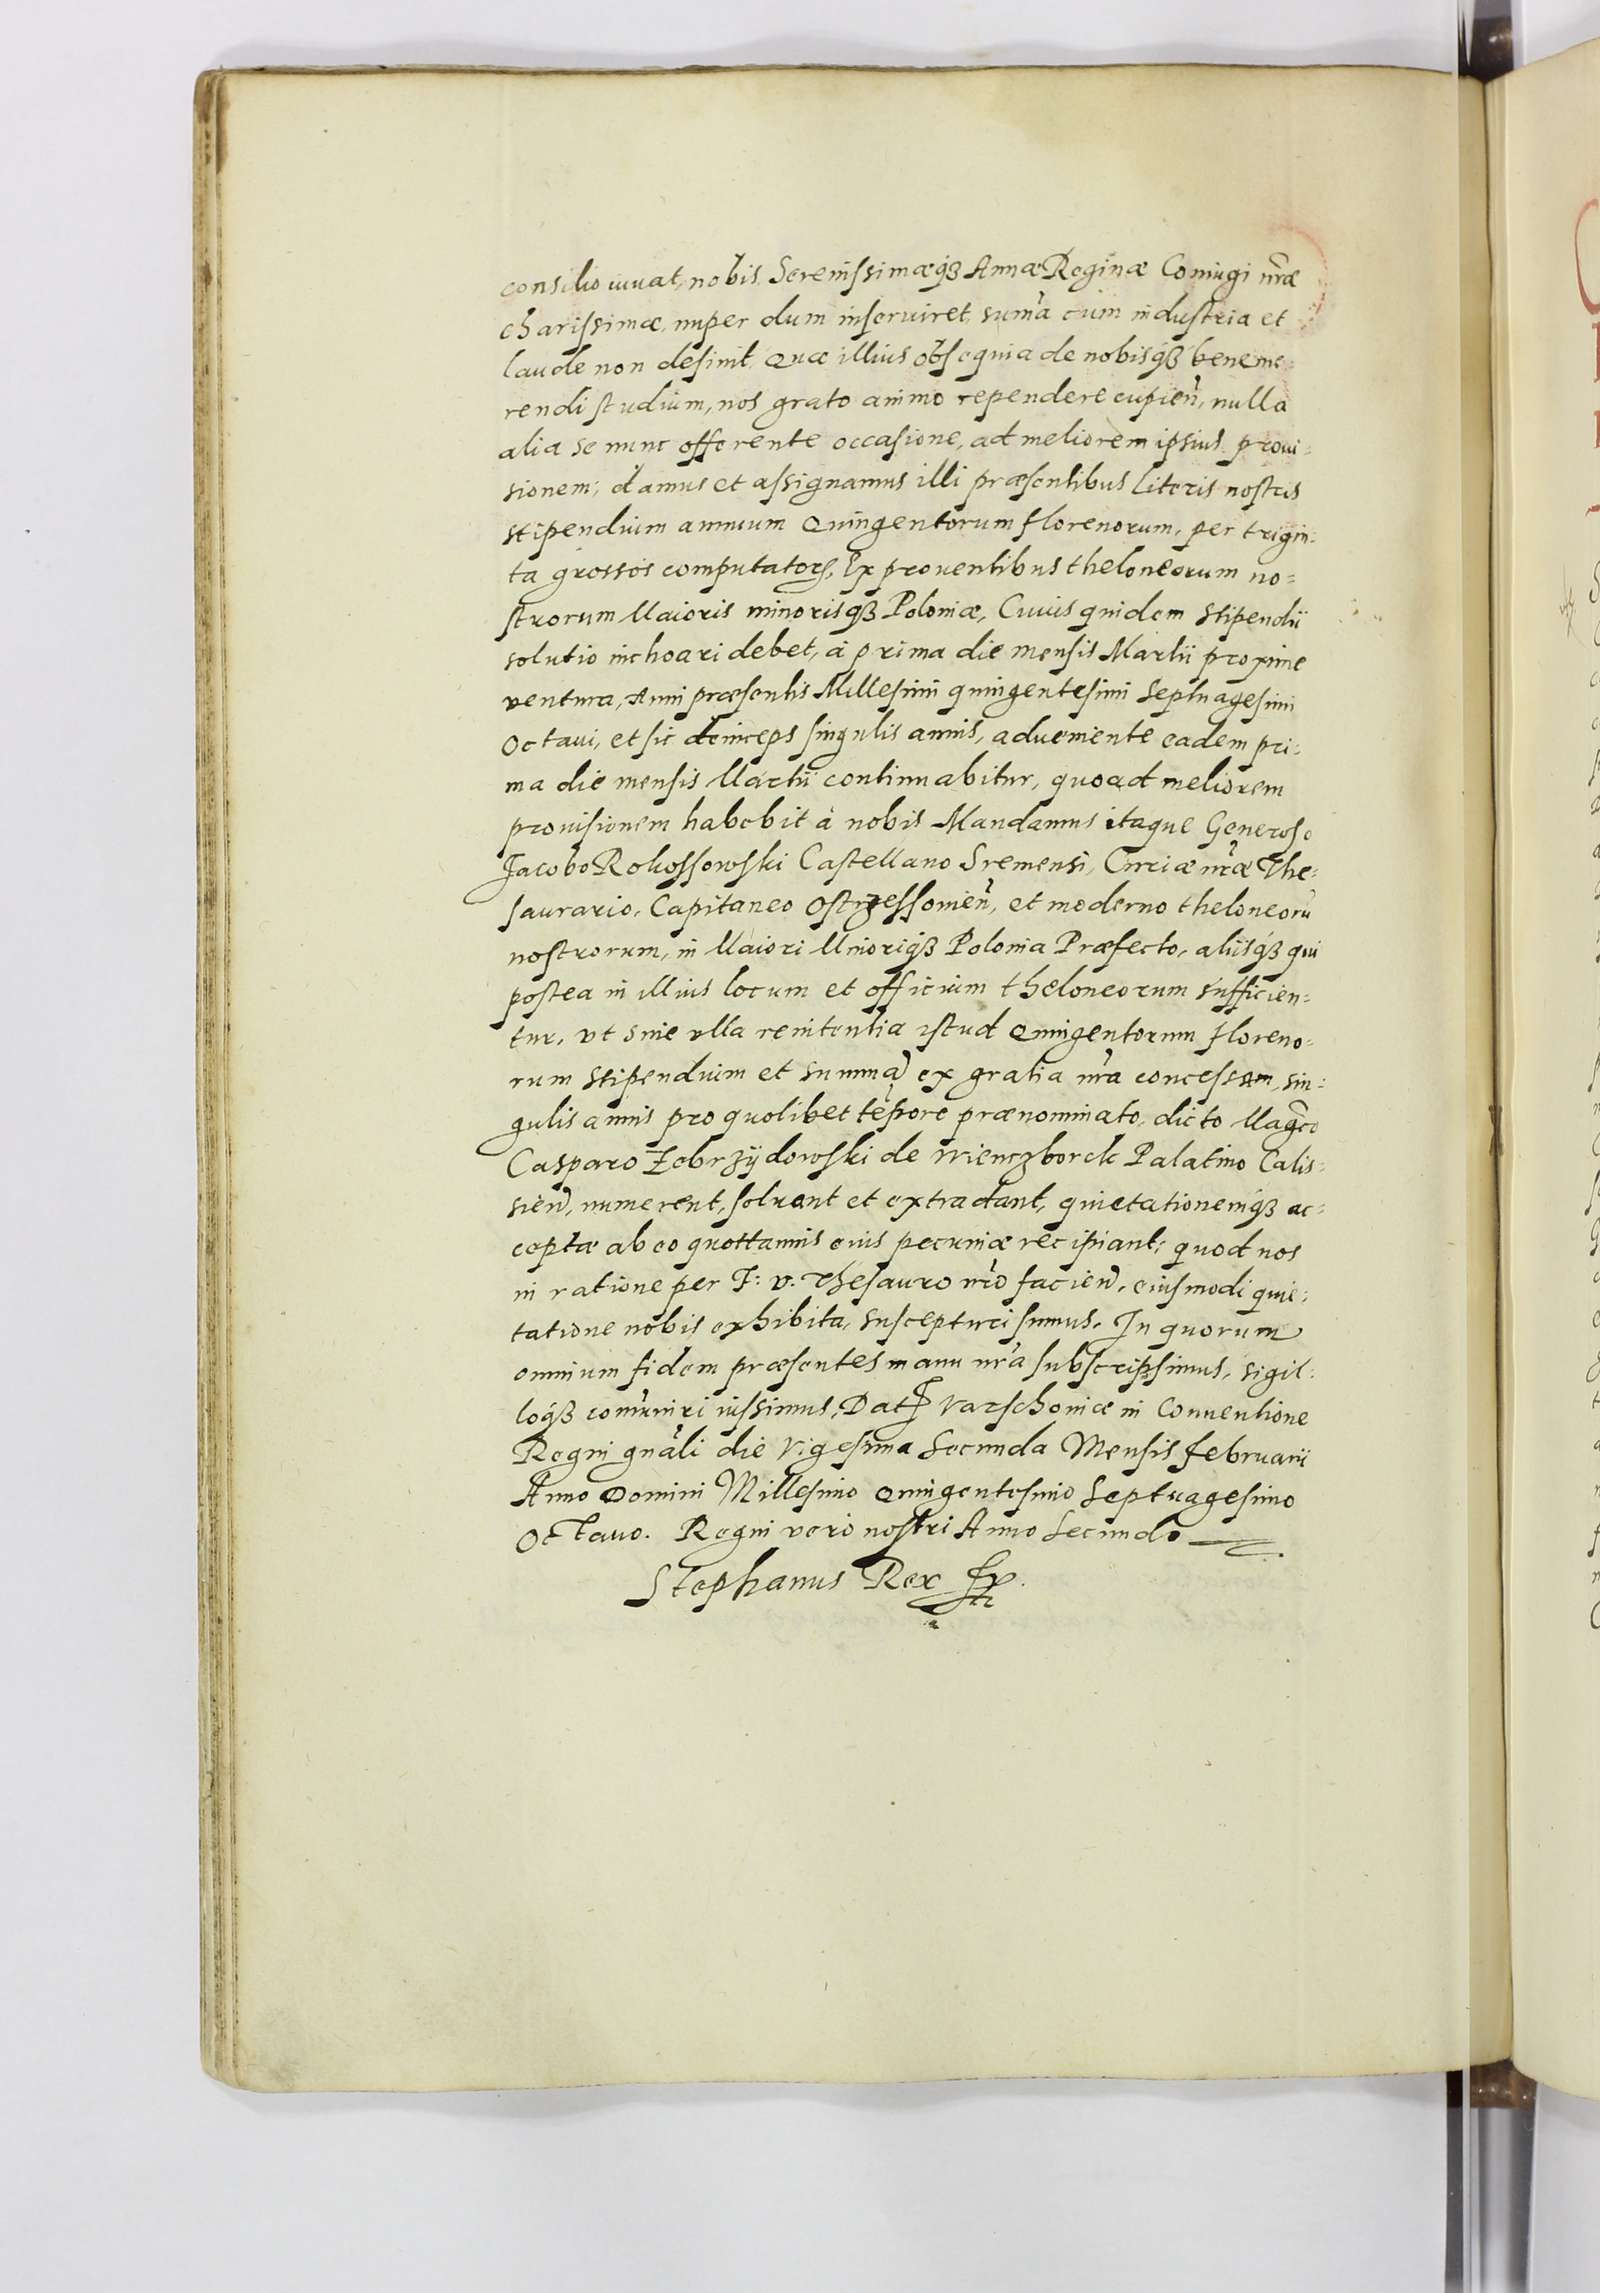 consilio iuuat, nobis Serenissimæq3 Annæ Reginæ Coniugi nr̃æ
charissimæ, nuper dum inseruiret, sum̃a cum industria et
laude non desinit. Quæ illius obsequia de nobisq3 beneme:
rendi studium, nos grato animo rependere cupieñ, nulla
alia se nunc offerente occasione, ad meliorem ipsius proui:
sionem; damus et assignamus illi præsentibus literis nostris
stipendium annuum Quingentorum florenorum, per trigin:
ta grossos computatorꝝ, Ex prouentibus theloneorum no=
strorum Maioris minorisq3 Poloniæ, Cuius quidem stipendii
solutio inchoari debet, à prima die mensis Martii proxime
ventura, Anni præsentis Millesimi quingentesimi Septuagesimi
Octaui, et sic deinceps singulis annis, adueniente eadem pri:
ma die mensis Martii continuabitur, quoad meliorem
prouisionem habebit à nobis Mandamus itaque Generoso
Jacobo Rokossowski Castellano Sremensi, Curiæ nr̃æ The:
saurario, Capitaneo Ostrzessouieñ, et moderno theloneorũ
nostrorum, in Maiori Minoriq3 Polonia Præfecto, aliisq3 qui
postea in illius locum et officium theloneorum sufficien:
tur, vt sine vlla renitentia istud Quingentorum floreno:
rum stipendium et summã ex gratia nr̃a concessam, sin:
gulis annis pro quolibet tẽpore prænominato, dicto Magc̃o
Casparo Zebrzÿdowski de Wienczborck Palatino Calis:
sieñ, numerent, soluant et extradant, quietationemq3 ac:
ceptæ ab eo quottannis eius pecuniæ recipiant; quod nos
in ratione per F: V: Thesauro nr̃o facieñ, eiusmodi quie:
tatione nobis exhibita, suscepturi sumus. In quorum
omnium fidem præsentes manu nr̃a subscripsimus, sigil:
loq3 com̃uniri iussimus, Datꝭ Varschouiæ in Conuentione
Regni gnãli die Vigesima Secunda Mensis februarii
Anno Domini Millesimo Quingentesimo Septuagesimo
Octauo. Regni vero nostri Anno Secundo
Stephanus Rex